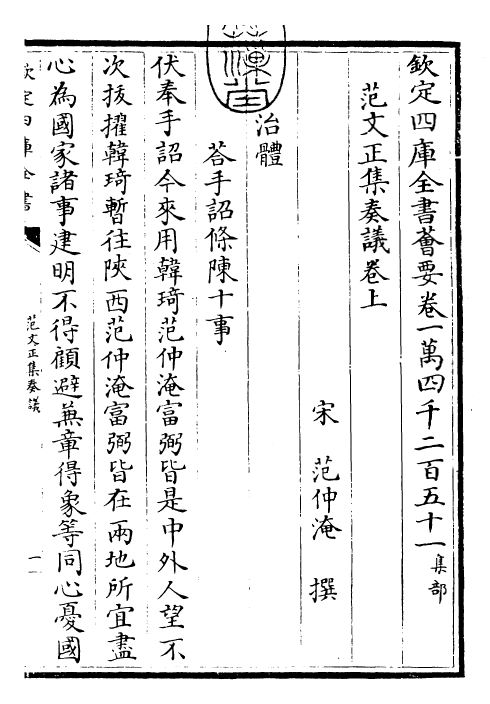 欽定四庫全書薈要卷一萬四千二百五十一集部
范文正集奏議卷上
宋 范仲淹 撰
治體
荅手詔條陳十事
伏奉手詔今來用韓琦范仲淹富弼皆是中外人望不
次拔擢韓琦暫往陝西范仲淹富弼皆在兩地所宜盡
心為國家諸事建明不得顧避兼章得象等同心憂國
欽定四庫全書
范文正集奏議
一